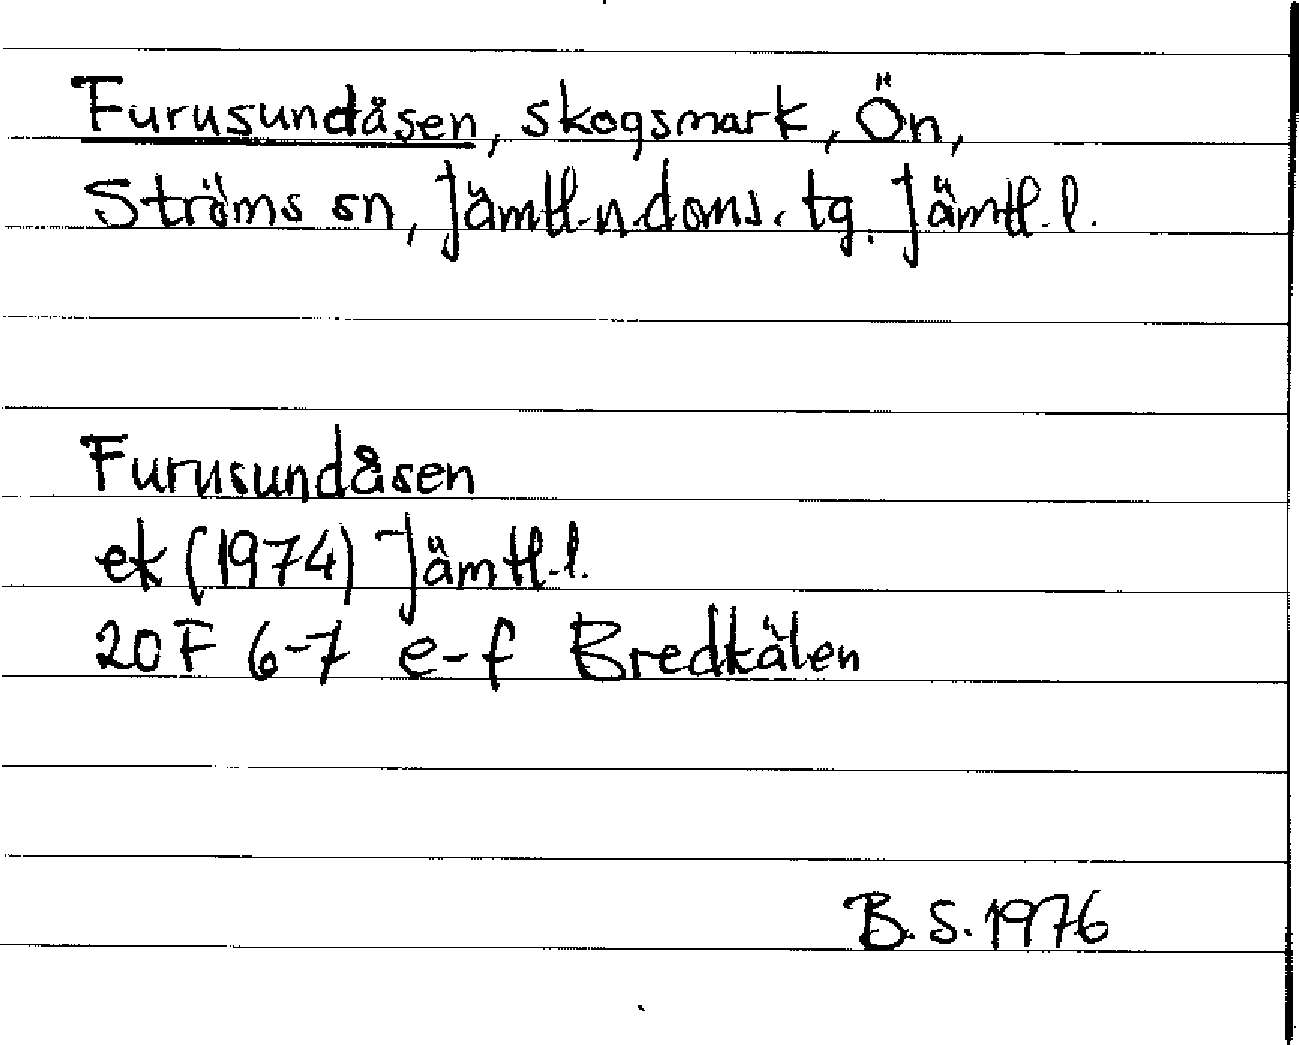 Furusundåsen, skogsmark, Ön,
Ströms sn, Jämtl.n.doms.tg. Jämtl.l.
Furusundåsen
ek (1974) Jämtl.l.
20F 6-7 e-f Bredkälen
B.S.1976